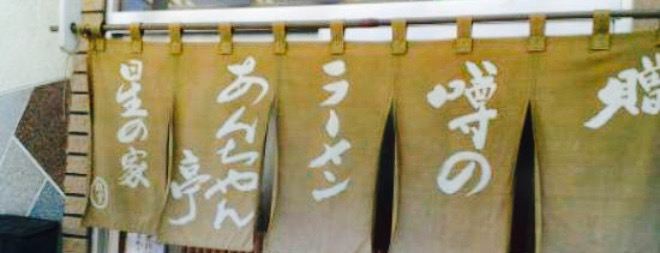 贈
噂の
ラーメン
あんちゃん
亭
星の家